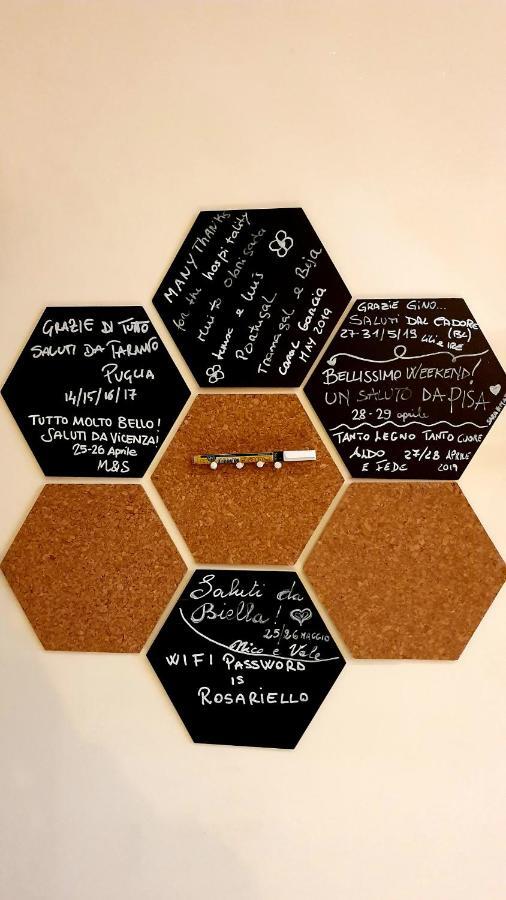 MANY THANKS
for the hospitality
Muito obrigada
e Luis
Portugal
Tramagal e Beja
Carol Garcia
MAY 2019
GRAZIE DI TUTTO
SALUTI DA TARANTO
PUGLIA
14/15/16/17
TUTTO MOLTO BELLO!
SALUTI DA VICENZA!
25-26 Aprile
M&S
GRAZIE GINO...
SALUTI DAL CADORE
27-31/5/19 (BL)
Lili e IRE
BELLISSIMO WEEKEND!
UN SALUTO DA PISA
28-29 aprile
TANTO LEGNO TANTO CUORE
ALDO 27/28 APRILE
E FEDE 2019
Saluti da
Biella!
25/26 MAGGIO
Nico e Vale
WIFI PASSWORD
IS
ROSARIELLO